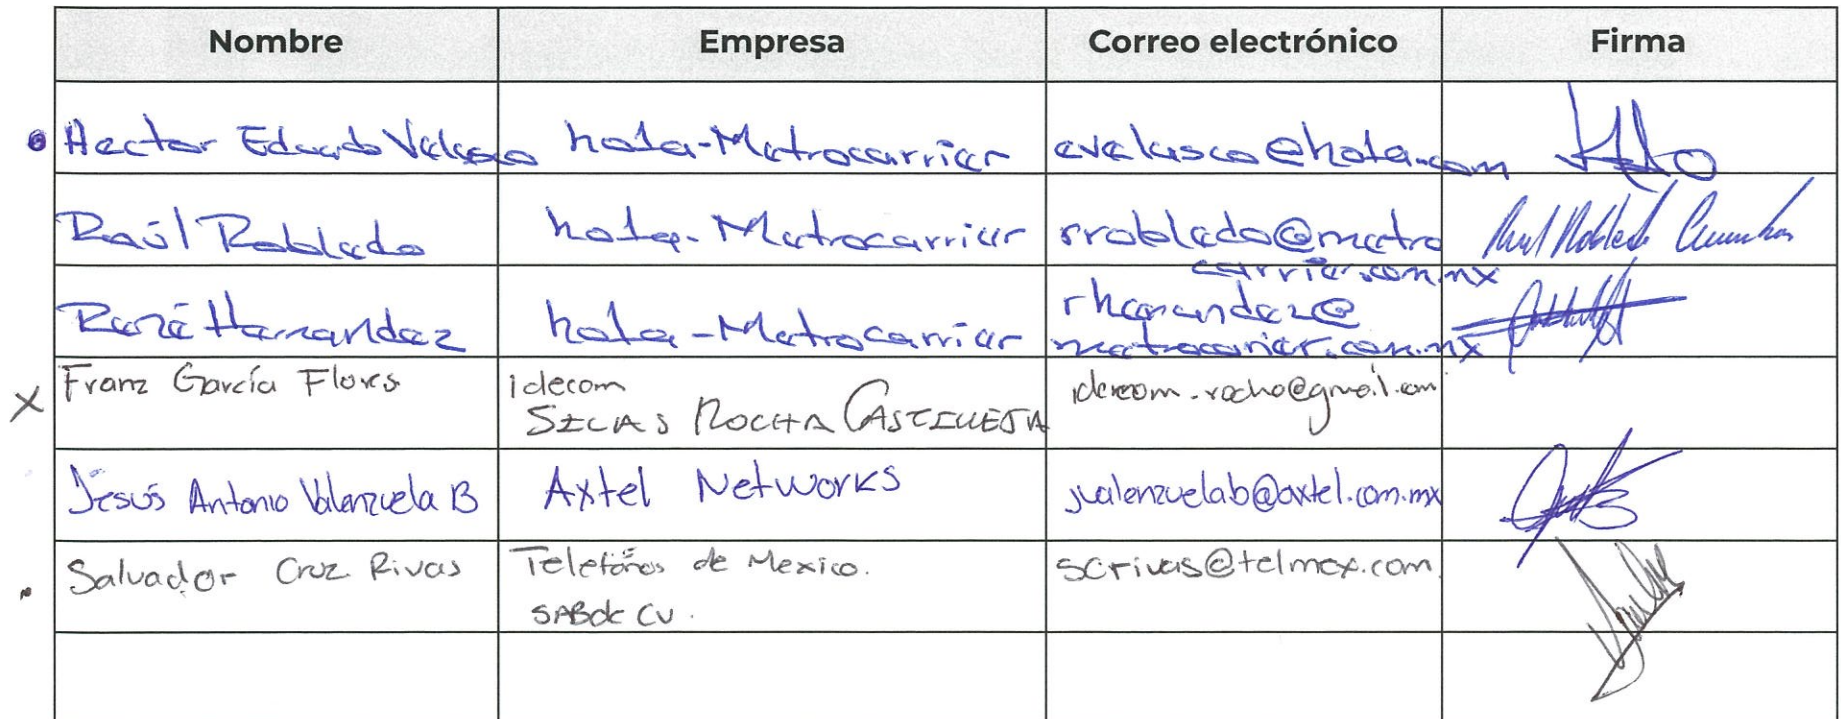 Nombre Empresa Correo electrónico Firma
Hector Eduardo Velasco hola-Metrocarrier evelasco@hola.com
Raúl Robledo hola-Metrocarrier rrobledo@metro
carrier.com.mx
René Hernandez hola-Metrocarrier rhernandez@
metrocarrier.com.mx
Franz García Flores idecom idecom.rocha@gmail.com
SILAS ROCHA
Jesús Antonio Valenzuela B Axtel Networks jvalenzuelab@axtel.com.mx
Salvador Cruz Rivas Telefónos de Mexico. scrivas@telmex.com
SAB de CV.